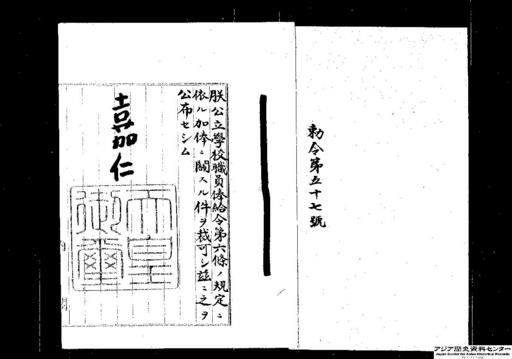 勅令第五十七號
朕公立學校職員俸給令第六條ノ規定ニ
依ル加俸ニ關スル件ヲ裁可シ茲ニ之ヲ
公布セシム
嘉仁
天皇
御璽
アジア歴史資料センター
Japan Center for Asian Historical Records